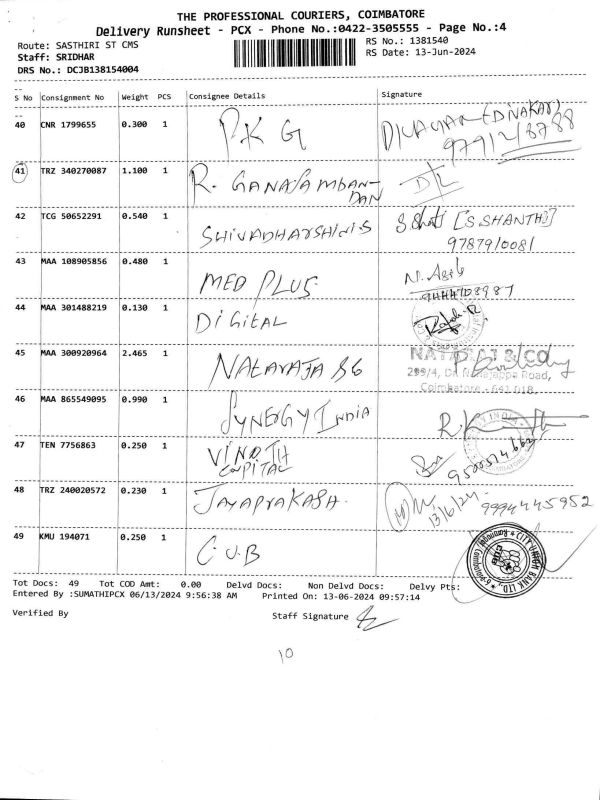 THE PROFESSIONAL COURIERS, COIMBATORE
Delivery Runsheet - PCX - Phone No.:0422-3505555 - Page No.:4
Route: SASTHIRI ST CMS
RS No.: 1381540
Staff: SRIDHAR
RS Date: 13-Jun-2024
DRS No.: DCJB138154004
S No Consignment No Weight PCS Consignee Details Signature
40 CNR 1799655 0.300 1 P.K G DIVAKAR (DIVAKAR)
9791218788
41 TRZ 340270087 1.100 1 R. GANASAMBAN-
DAN
42 TCG 50652291 0.540 1 SHIVADHARSHINIS [S.SHANTHI]
9787910081
43 MAA 108905856 0.480 1 MED PLUS
9444108987
44 MAA 301488219 0.130 1 DIGITAL
45 MAA 300920964 2.465 1 NATARAJA &G NATARAJ & CO
299/4, Road,
Coimbatore - 641 018
46 MAA 865549095 0.990 1 SYNERGY INDIA
47 TEN 7756863 0.250 1 VINOTH
CAPITAL
48 TRZ 240020572 0.230 1 JAYAPRAKASH. 13/6/24 9994445952
49 KMU 194071 0.250 1 C.U.B CITY UNION BANK LTD.
CUB
Tot Docs: 49 Tot COD Amt: 0.00 Delvd Docs: Non Delvd Docs: Delvy Pts:
Entered By :SUMATHIPCX 06/13/2024 9:56:38 AM Printed On: 13-06-2024 09:57:14
Verified By Staff Signature
10